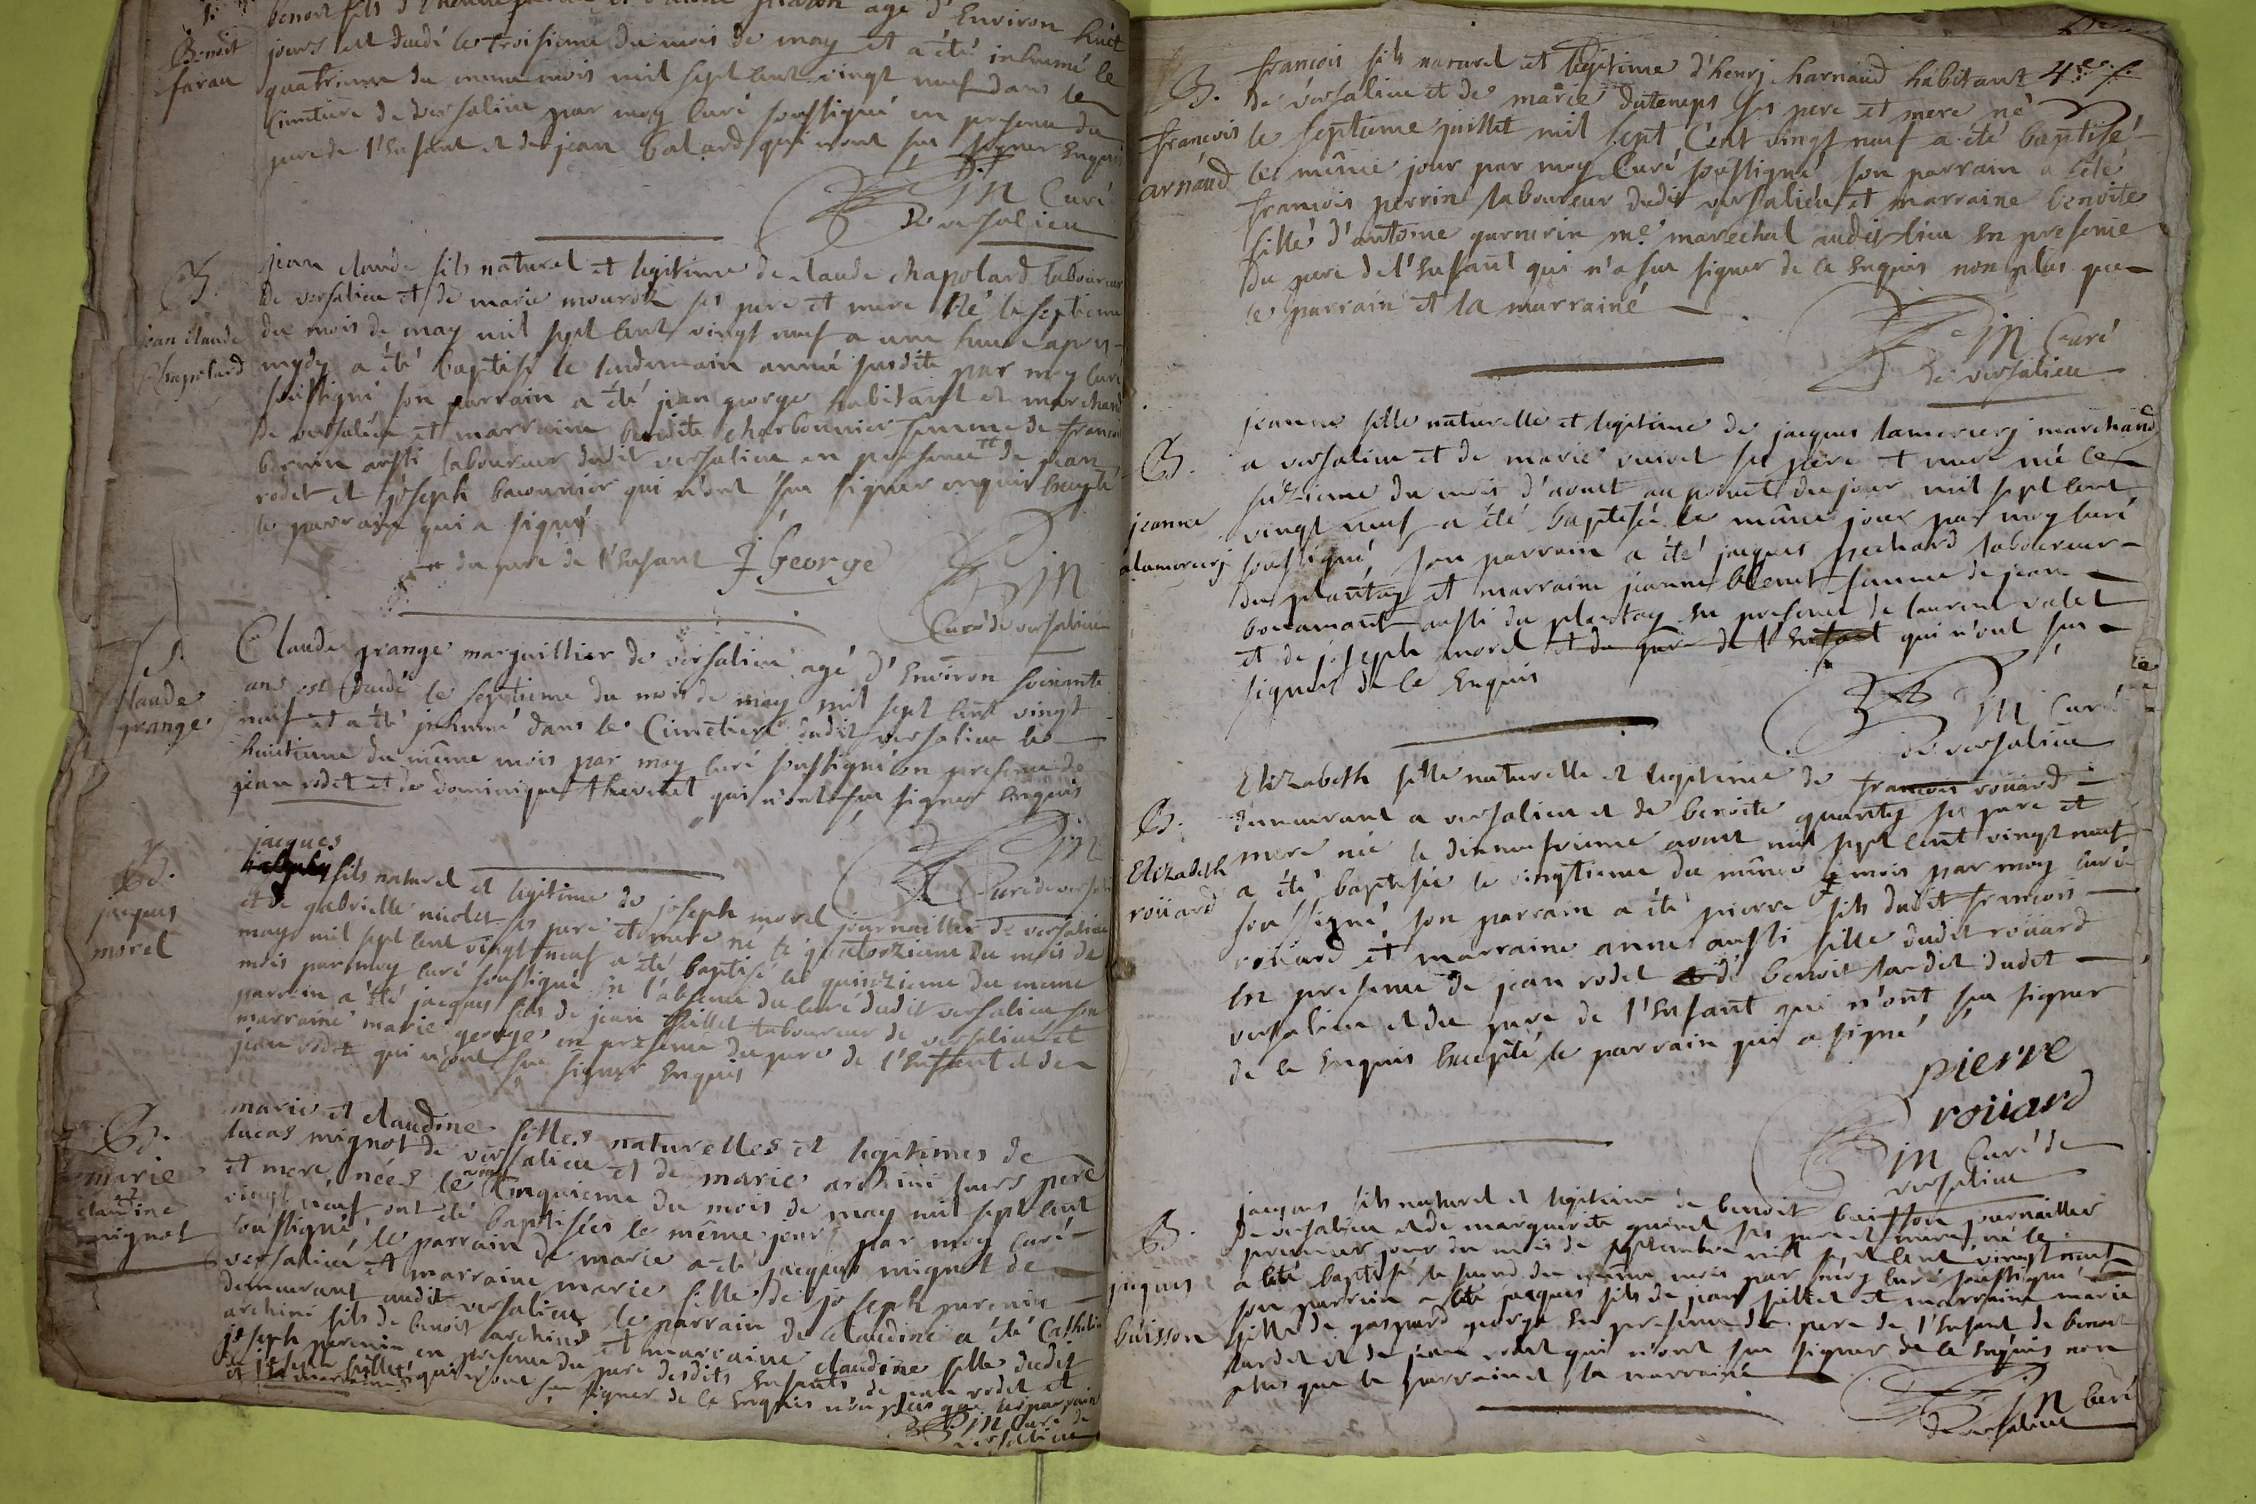 Benoit
farau
jours est decedé le troisieme du mois de may et a été inhumé le
quatrieme du meme mois mil sept cent vingt neuf dans le
cimetiere de versalieu par moy curé soussigné en presence du
pere de l'enfant et de jean balard qui n'ont sçu signer enquis
curé
de versalieu
B.
jean claude
chapolard
jean claude fils naturel et legitime de claude chapolard laboureur
de versalieu et de marie mourot ses pere et mere né le septieme
du mois de may mil sept cent vingt neuf a une heure apres
mydy a été baptisé le lendemain année susdite par moy curé
soussigné son parrain a été jean george habitant et marchand
de versalieu et marraine benoite charbonnier femme de francois
bernin aussi laboureur dudit versalieu en presence de jean
rodet et joseph qui n'ont sçu signer enquis excepté
le parrain qui a signé
et du pere de l'enfant J George
Curé de versalieu
S.
claude
grange
Claude grange marguillier de versalieu agé d'environ soixante
ans est decedé le septieme du mois de may mil sept cent vingt
neuf et a été inhumé dans le Cimetiere dudit versalieu le
huitieme du même mois par moy curé soussigné en presence de
jean rodet et de dominique thevenet qui n'ont sçu signer enquis
Curé de versalieu
B.
jacques
morel
jacques
fils naturel et legitime de joseph morel journaillier de versalieu
et de gabrielle nicolet ses pere et mere né le quatorzieme du mois de
may mil sept cent vingt neuf a été baptisé le quinzieme du meme
mois par moy curé soussigné en l'absence du curé dudit versalieu son
parrain a été jacques fils de jean billet laboureur de versalieu et
marraine marie george en presence du pere de l'enfant et de
jean rodet qui n'ont sçu signer enquis
B.
marie
et
claudine
mignot
marie et claudine filles naturelles et legitimes de
lucas mignot de versalieu et de marie archini leurs pere
et mere nées le vingt cinquieme du mois de may mil sept cent
vingt neuf ont été baptisées le même jour par moy curé
soussigné, le parrain de marie a été jacques mignot de
versalieu et marraine marie fille de joseph perenin
demeurant audit versalieu le parrain de claudine a été Catholin
archini fils de benoit archini et marraine claudine fille dudit
joseph perenin en presence du pere desdits enfants de jean rodet et
de joseph billet qui n'ont sçu signer de ce enquis non plus que les parrains
et les marraines
curé de
versalieu
4e f.
B.
francois
arnaud
francois fils naturel et legitime d'henry harnaud habitant
de versalieu et de marie dutemps ses pere et mere né
le septieme juillet mil sept cent vingt neuf a été baptisé
le même jour par moy Curé soussigné son parrain a été
francois perrin laboureur dudit versalieu et marraine benoite
fille d'antoine garnerin me marechal audit lieu en presence
du pere de l'enfant qui n'a sçu signer de ce enquis non plus que
le parrain et la marraine
Curé
de versalieu
B.
jeanne
lamerery
jeanne fille naturelle et legitime de jacques lamerery marchand
a versalieu et de marie ses pere et mere née le
seizieme du mois d'aoust au point du jour mil sept cent
vingt neuf a été baptisée le même jour par moy curé
soussigné, son parrain a été jacques pechard laboureur
du plantay et marraine jeanne femme de jean
bonamant aussi du plantay en presence de laurent valet
et de joseph morel et du pere de l'enfant qui n'ont sçu
signer de ce enquis
Curé
de versalieu
B.
Elizabeth
roüard
Elizabeth fille naturelle et legitime de francois roüard
demeurant a versalieu et de benoite quantey ses pere et
mere née le dixneufvieme aoust mil sept cent vingt neuf
a été baptisée le vingtieme du même mois par moy curé
soussigné, son parrain a été pierre fils dudit francois
roüard et marraine anne aussi fille dudit roüard
en presence de jean rodet et de benoit tardet dudit
versalieu et du pere de l'enfant qui n'ont sçu signer
de ce enquis excepté le parrain qui a signé
pierre
roüard
Curé de
versalieu
B.
jacques
buisson
jacques fils naturel et legitime de benoit buisson journaillier
de versalieu et de marguerite quinet ses pere et mere né le
premier jour du mois de septembre mil sept cent vingt neuf
a été baptisé le second du même mois par moy curé soussigné
son parrain a été jacques fils de jean billet et marraine marie
fille de gaspard george en presence du pere de l'enfant de benoit
tardet et de jean rodet qui n'ont sçu signer de ce enquis non
plus que le parrain et la marraine
curé
de versalieu